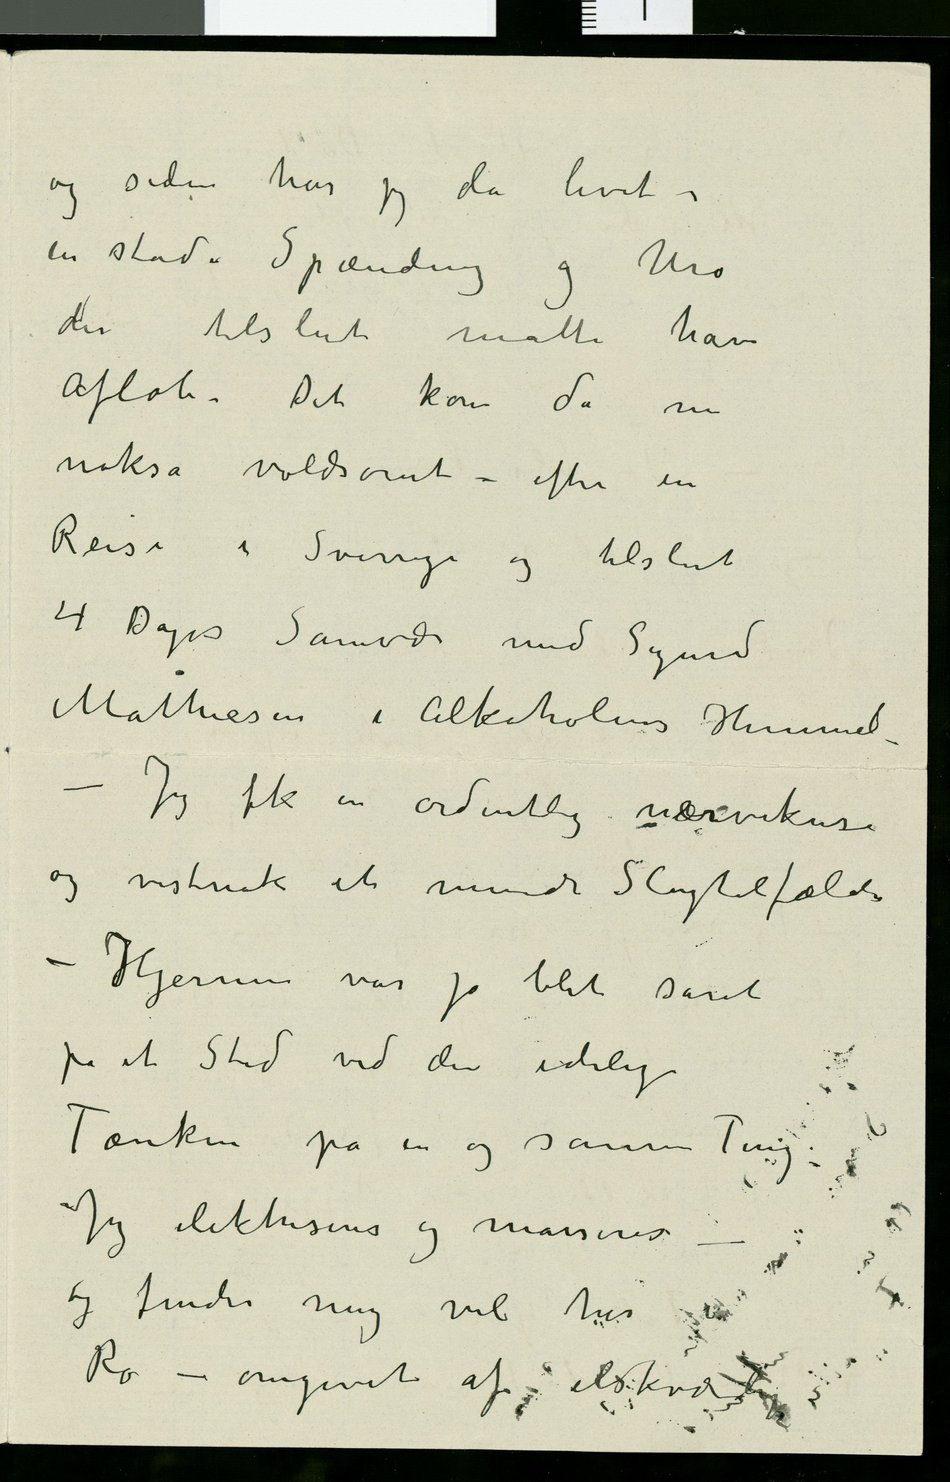 og siden har jeg da levet i
en stadi Spænding og Uro
der tilslut måtte have
Afløb. Det kom da nu
nokså voldsomt – efter en
Reise i Sverrige og tilslut
4 Dages Samvær med Sigurd
Mathiesen i Alkoholens Himmel –
– Jeg fik en ordentlig nærvekrise
og vistnok et mindre Slagtilfælde
– Hjernen var jo blit såret
på et Sted ved den idelige
Tænken på en og samme Ting.
Jeg elektriseres og masseres —
og finder mig vel her
Ro – omgivet af elskværdige